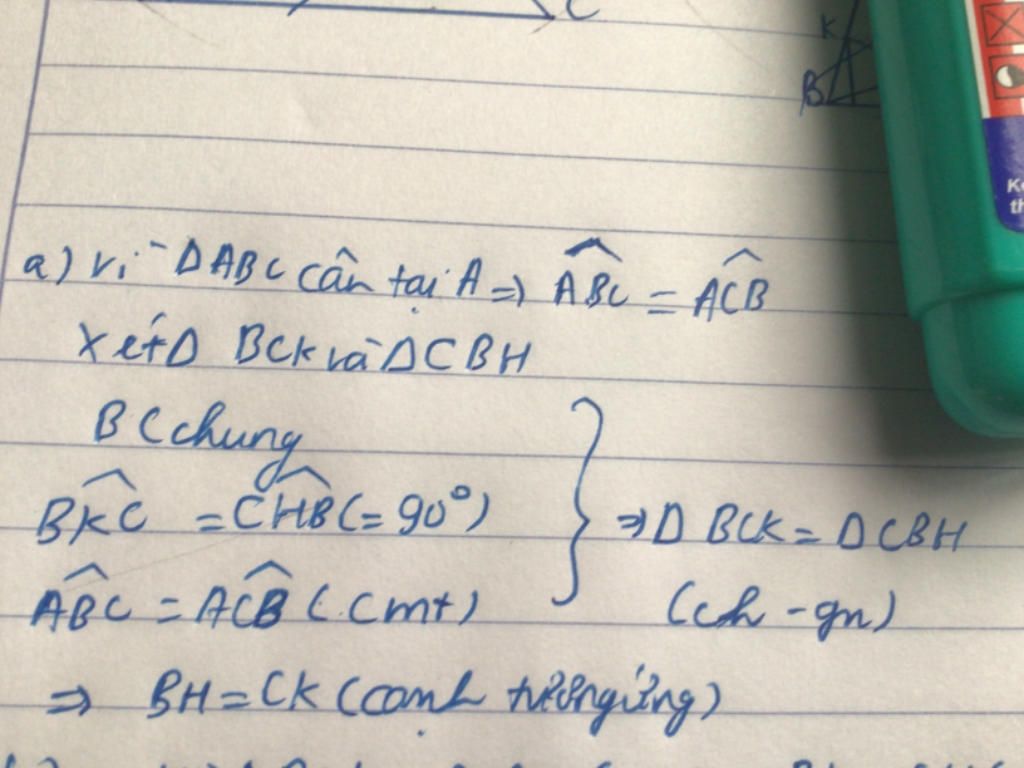 C
K
B
Ko
th
a) Vì ΔABC cân tại A => ABC = ACB
Xét Δ BCK và ΔCBH
BC chung
BKC = CHB (= 90°)
=> Δ BCK = ΔCBH
ABC = ACB (cmt)
(ch - gn)
=> BH = CK (cạnh tương ứng)